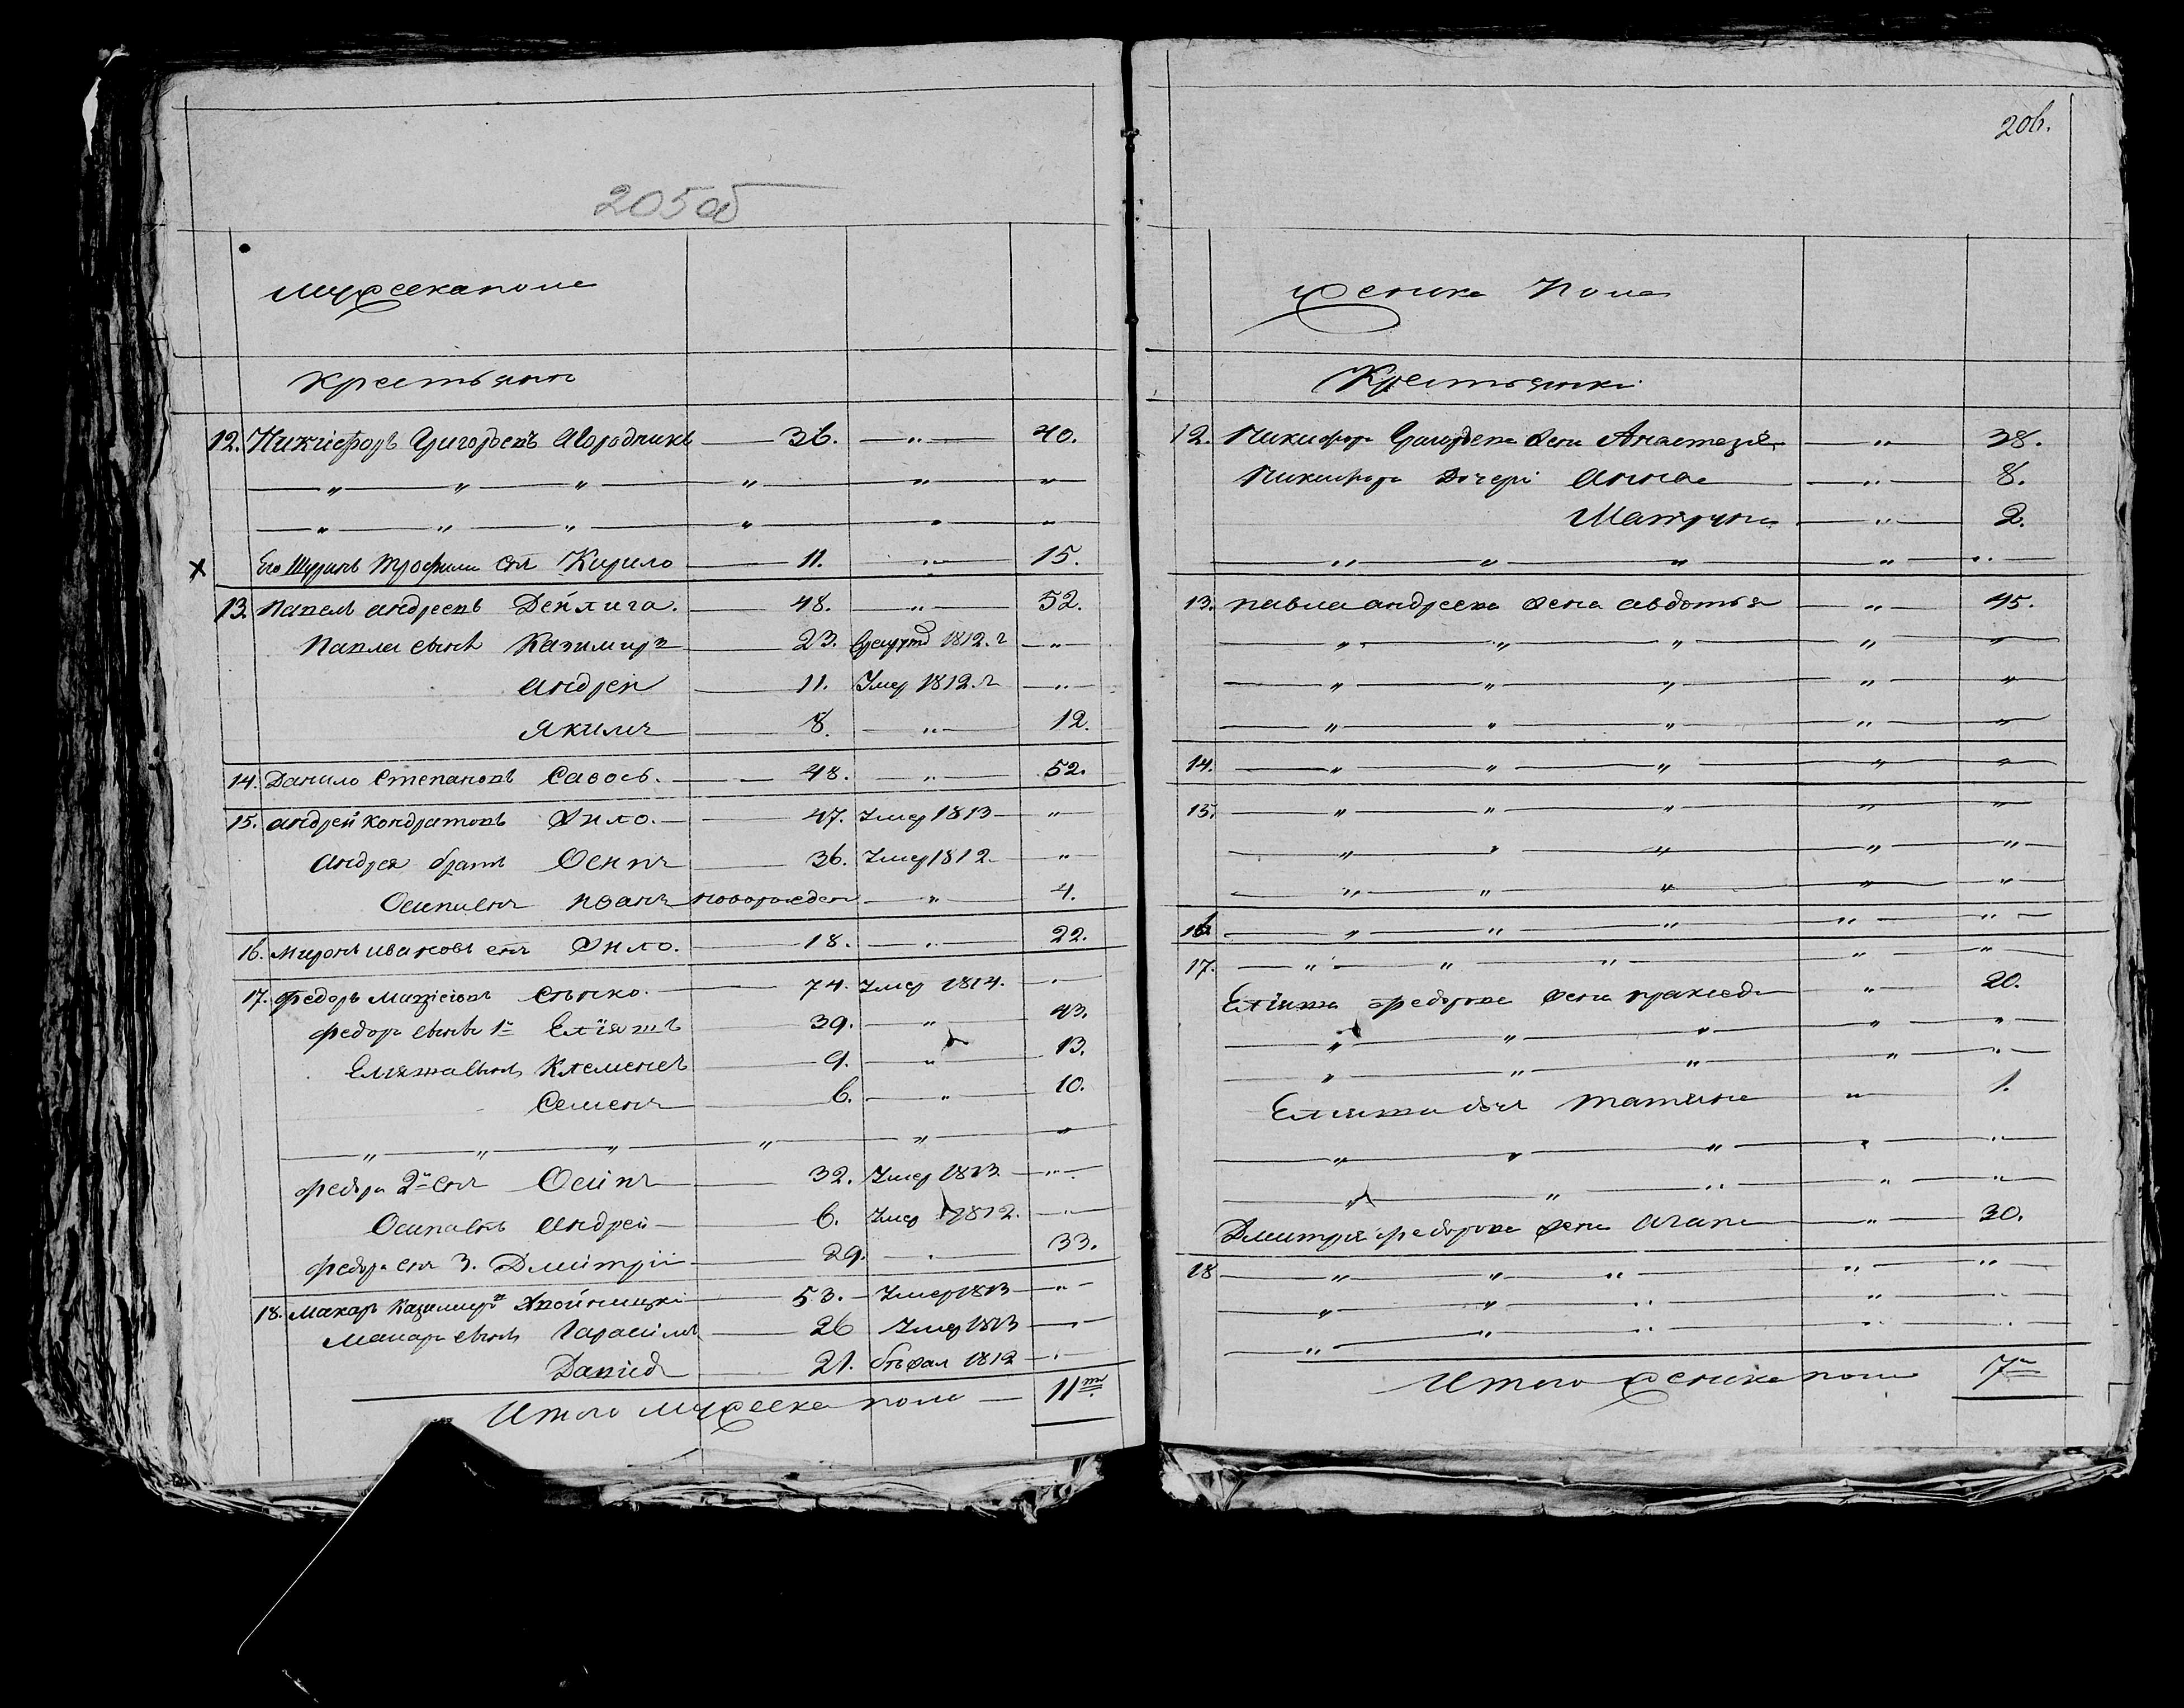 205 об
мужеска пола
крестьяне
12. Никифоръ Григорьевъ Агородникъ — 36. — " — 40.
— " — " — " — " — " — "
— " — " — " — " — " — "
х Его Шуринъ Трофима снъ Кирило — 11. — " — 15.
13. Павелъ андреевъ Дейлига. — 48. — " — 52.
Павла сынъ Казимиръ — 23. 1812. г — " —
андрей — 11. Умер 1812. г — " —
якимъ — 8. — " — 12.
14. Данило Степановъ Савось. — 48. — " — 52.
15. андрей кондратовъ — 47. Умер 1813 — "
андрея братъ Осипъ — 36. Умер 1812. — "
Осипа снъ иванъ новорожден — " — 4.
16. миронъ ивановъ снъ — 18. — " — 22.
17. федоръ — 74. Умер 1814. — "
федора сынъ 1й Елияшъ — 39. — " — 43.
Елияша сынъ Клеменъ — 9. — " — 13.
Семенъ — 6. — " — 10.
— " — " — " — " — " — "
федора 2й снъ Осипъ — 32. Умер 1813 — " —
Осипа снъ андрей — 6. Умер 1812. — " —
федора снъ 3. Дмитрій — 29. — " — 33.
18. макаръ казимировъ — 53. — Умер 1813 — " —
макара сынъ Гарасимъ — 26 Умер 1813 — " —
Давидъ — 21. бѣжал 1812 — " —
Итого мужеска пола — 11ть
206.
женска пола
Крестьянки
12. Никифора Григорьева жена Анастазія — " — 38.
Никифора дочери анна — " — 8.
Матруна — " — 2.
— " — " — " — " — "
13. павла андреева жена авдотья — " — 45.
— " — " — " — " — "
— " — " — " — " — "
— " — " — " — " — "
14. — " — " — " — " — "
15. — " — " — " — " — "
— " — " — " — " — "
— " — " — " — " — "
16. — " — " — " — " — "
17. — " — " — " — " — "
Еліяша федорова жена праксeда — " — 20.
— " — " — " — " — "
— " — " — " — " — "
Елияша дочь татьяна — " — 1.
— " — " — " — " — "
— " — " — " — " — "
Дмитрія федорова жена агапа — " — 30.
18 — " — " — " — " — "
— " — " — " — " — "
— " — " — " — " — "
Итого женска пола 7ь